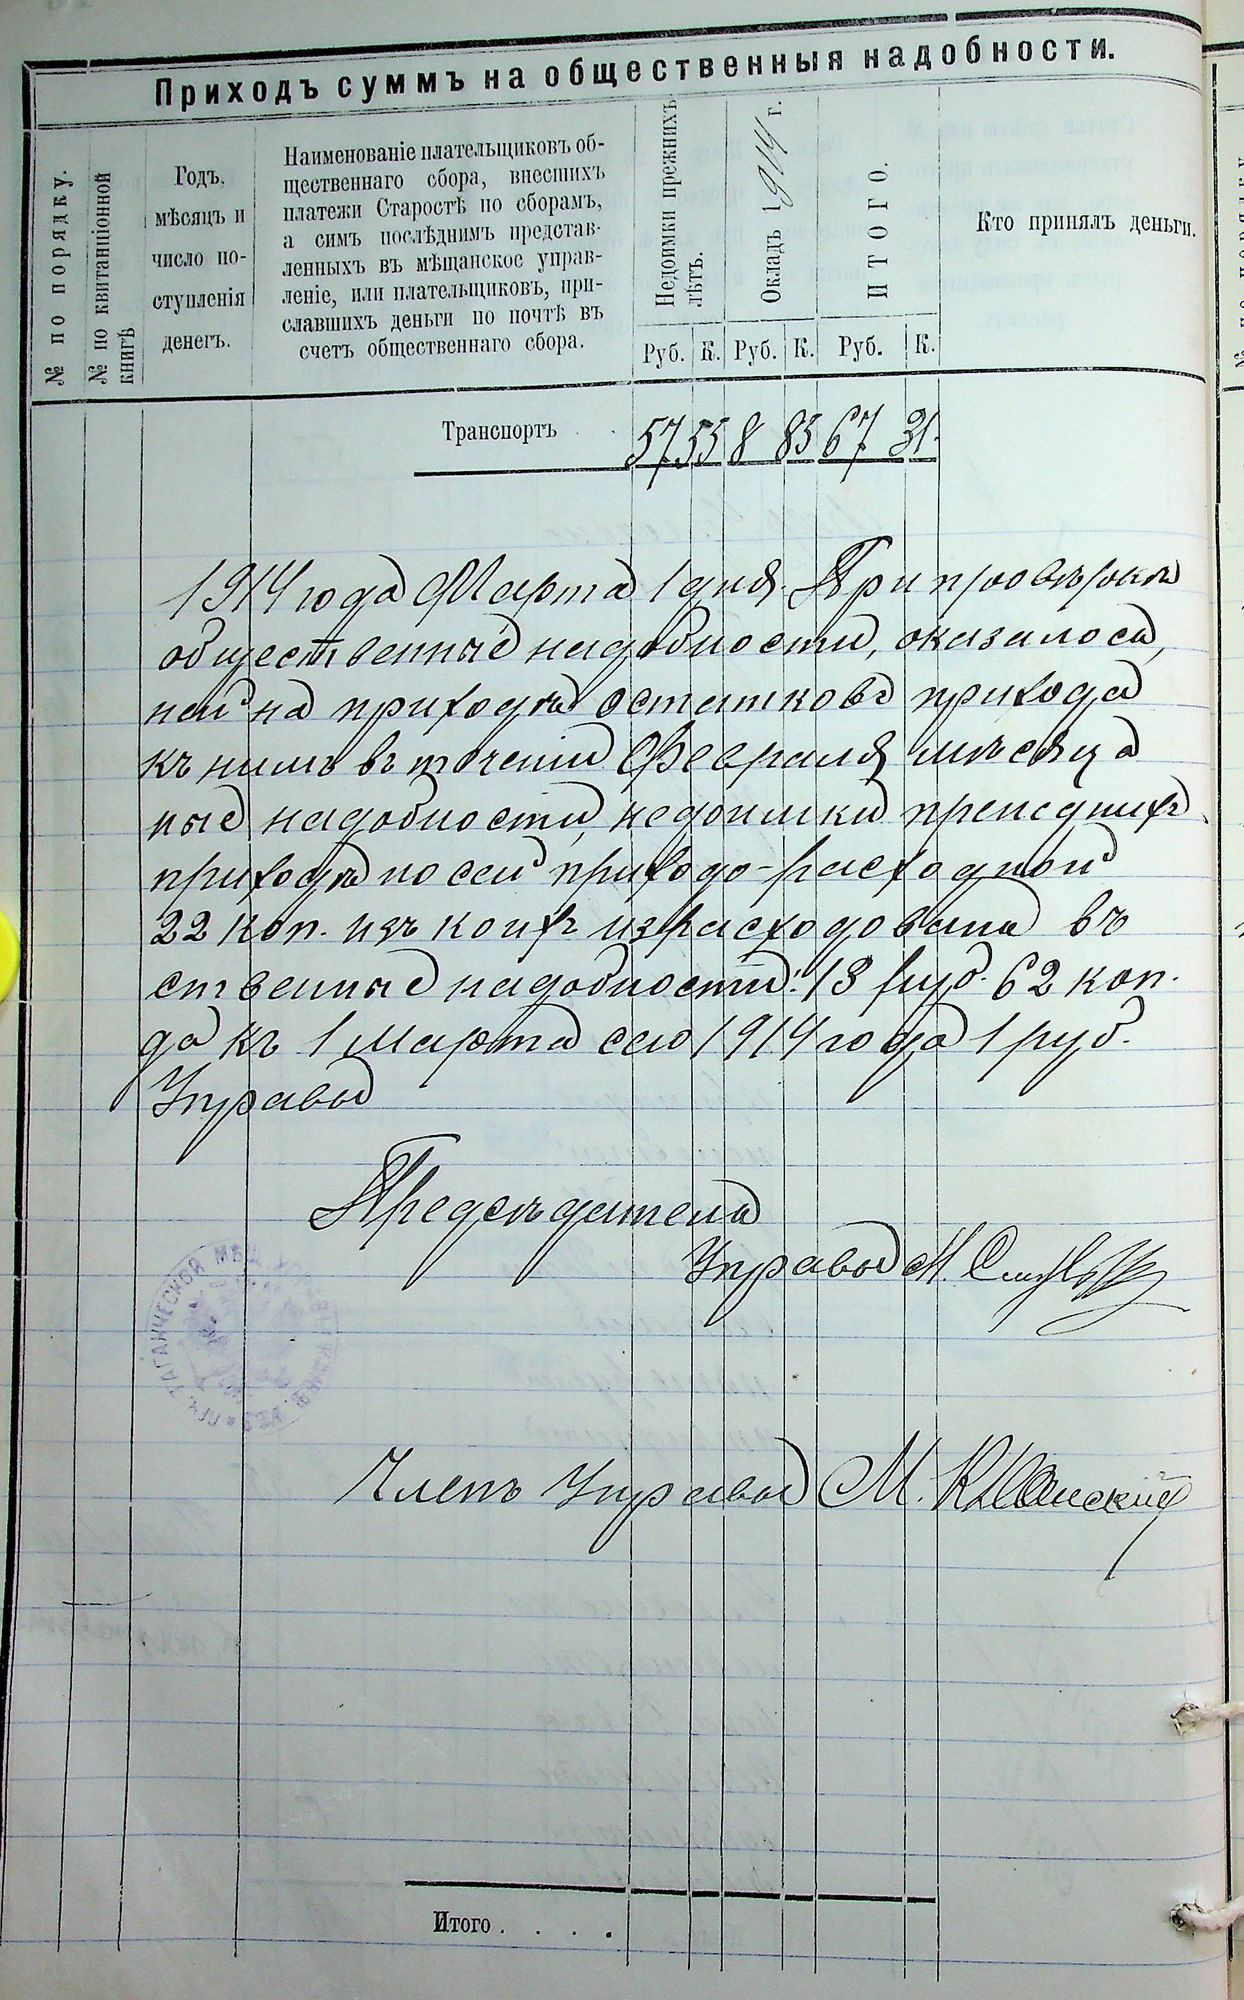 Приходъ суммъ на общественныя надобности.
№ по порядку.
№ по квитанціонной
книгѣ
Годъ,
мѣсяцъ и
число по-
ступленія
денегъ.
Наименованіе плательщиковъ об-
щественнаго сбора, внесшихъ
платежи Старостѣ по сборамъ,
а симъ послѣднимъ представ-
ленныхъ въ мѣщанское управ-
леніе, или плательщиковъ, при-
славшихъ деньги по почтѣ въ
счетъ общественнаго сбора.
Недоимки прежнихъ
лѣтъ.
Окладъ 1914 г.
ИТОГО.
Кто принялъ деньги.
Руб. К. Руб. К. Руб. К.
Транспортъ 57 55 8 85 67 31.
1914 года Марта 1 дня. При провѣркѣ
общественные надобности, оказалось,
ней на приходѣ остатковъ прихода
къ нимъ въ теченіи Февраля мѣсяца
ные надобности, недоимки прежднихъ
приходѣ по сей приходо-расходной
22 коп. изъ коихъ израсходовано въ
ственные надобности: 13 руб. 62 коп.
да къ 1 Марта сего 1914 года 1 руб.
Управы
Предсѣдатель
Управы М.
ТАГАНЧЕСКОЙ МѢЩ.
Членъ Управы М.
Итого . . . .